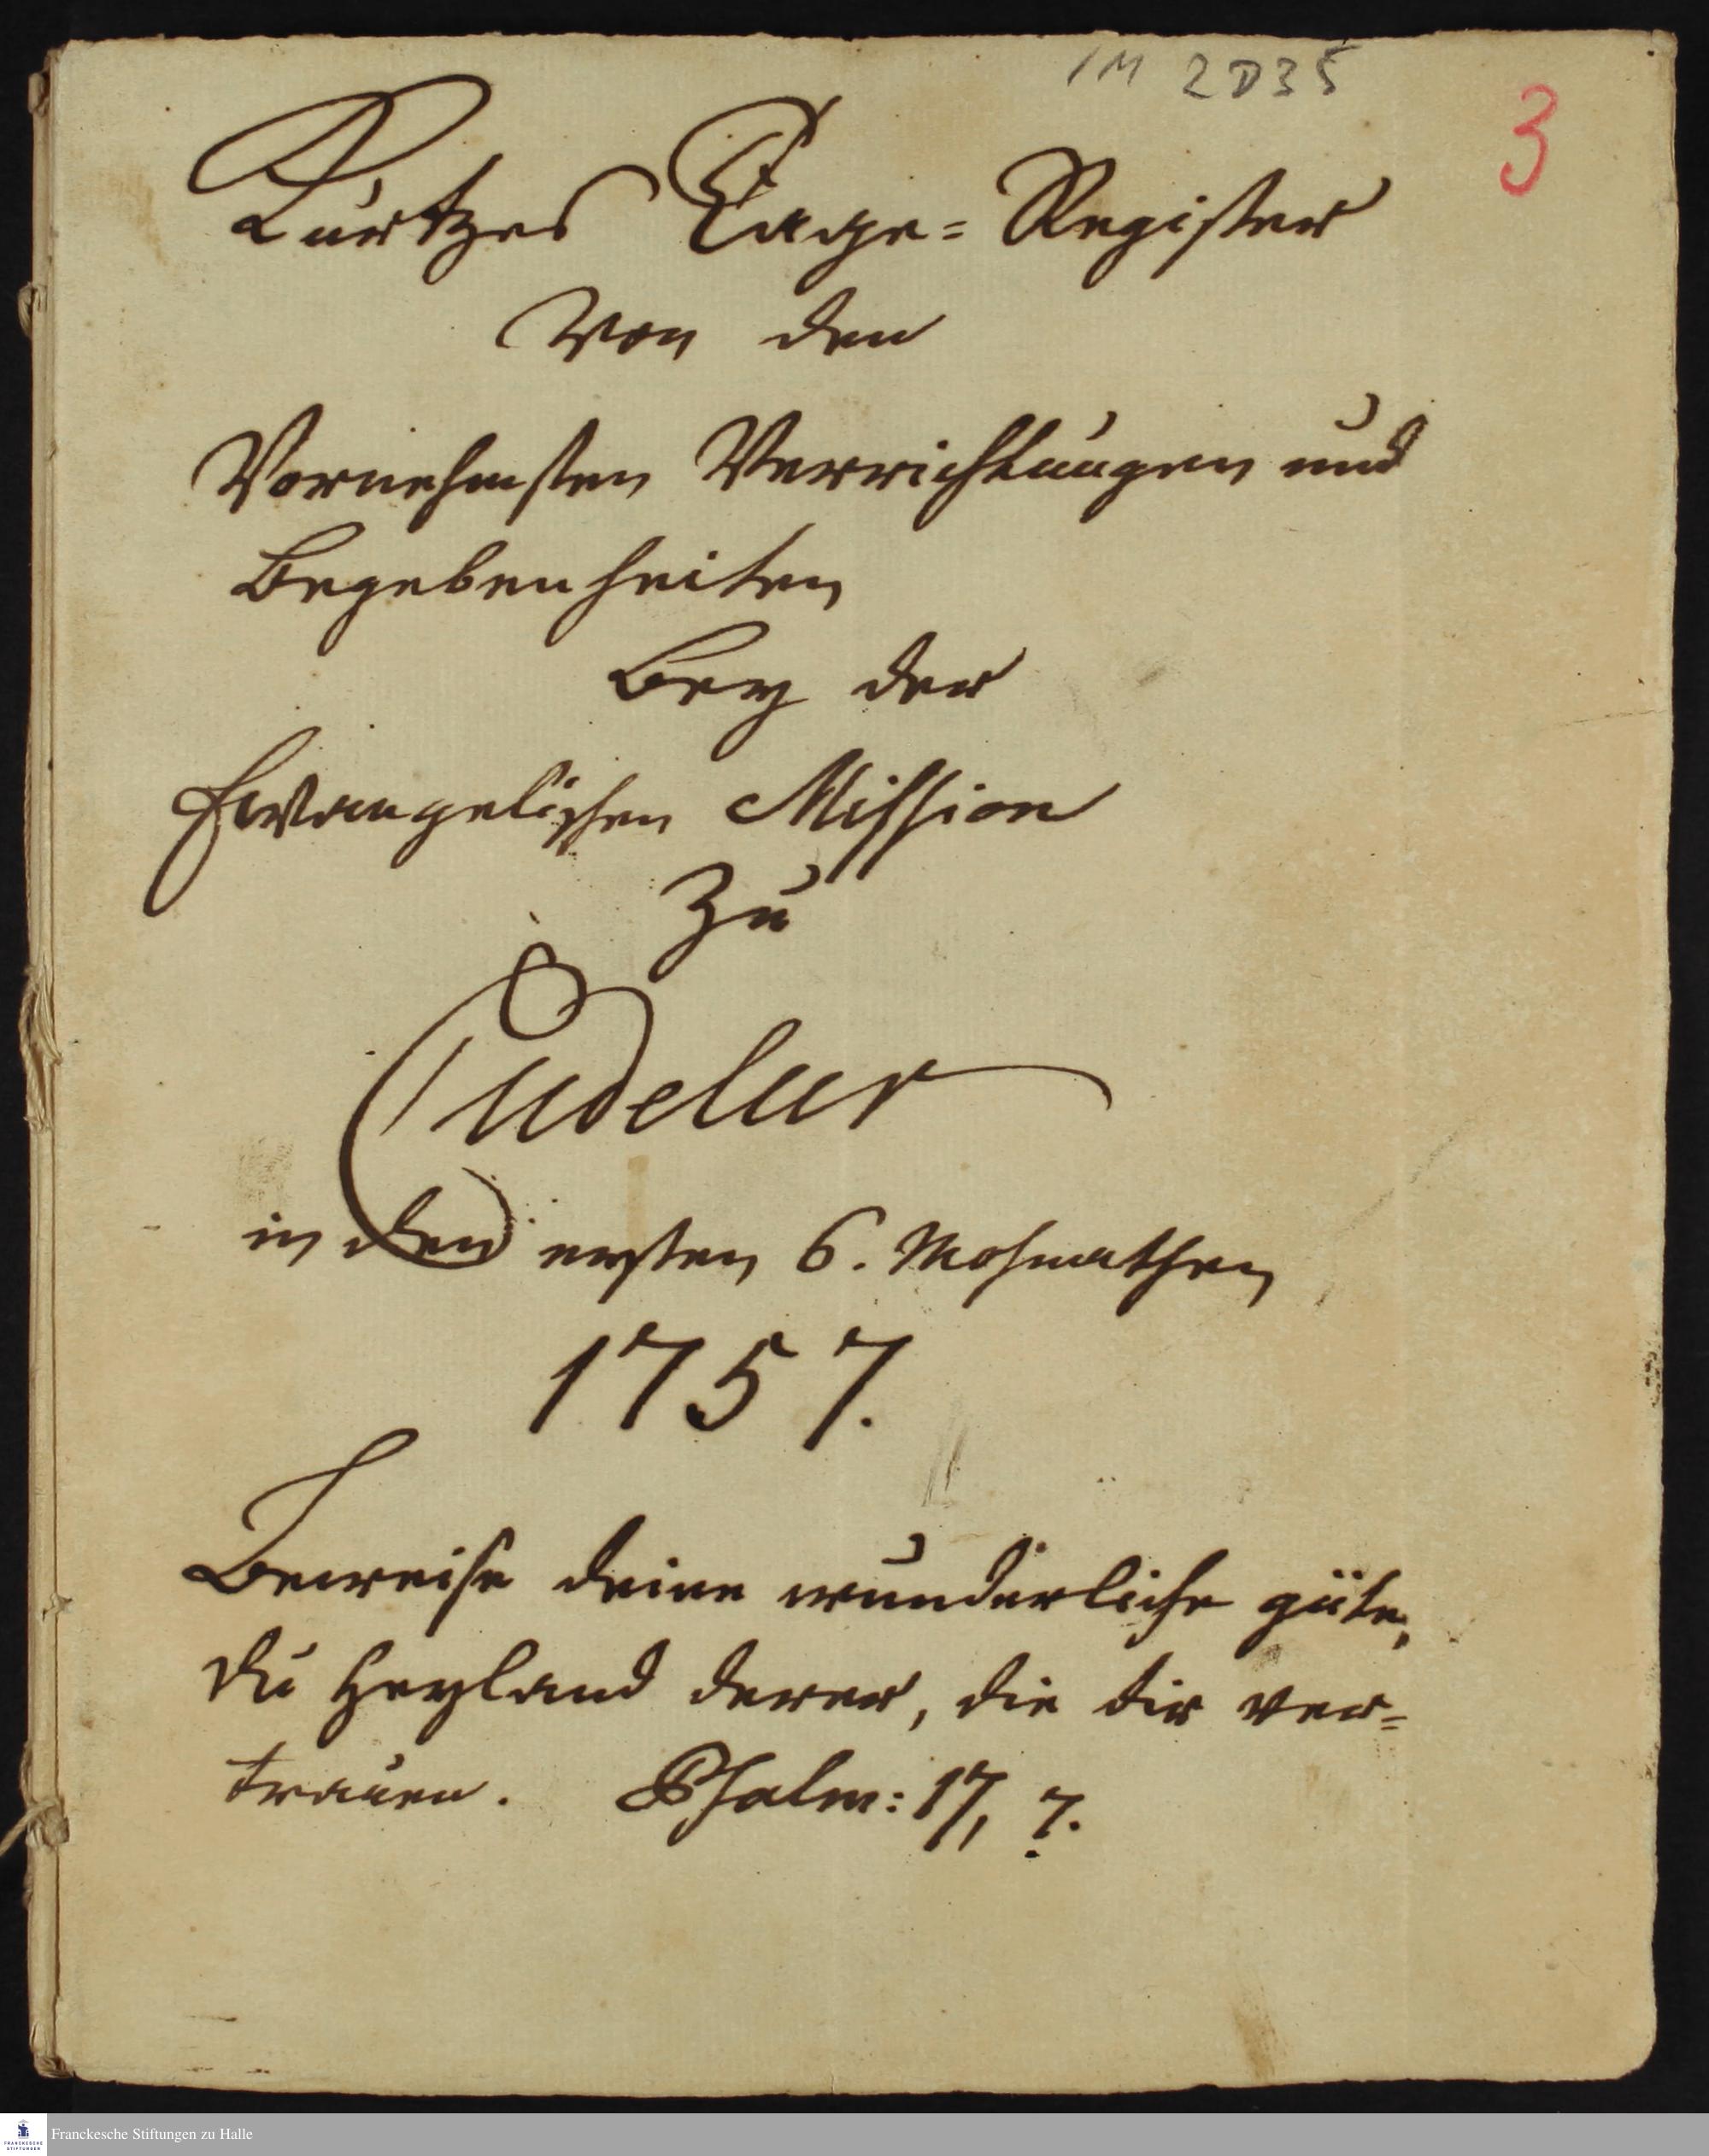 1M 2D35
3
Kurtzes Tage=Register
Von den
Vornehmsten Verrichtungen und
Begebenheiten
Bey der
Ewangelischen Mission
Zu
Cudelur
in den ersten 6. Mohnathen
1757.
Beweise deine wunderliche güte,
du Heyland derer, die dir ver=
trauen. Psalm: 17, 7.
FRANCKESCHE
STIFTUNGEN
Franckesche Stiftungen zu Halle